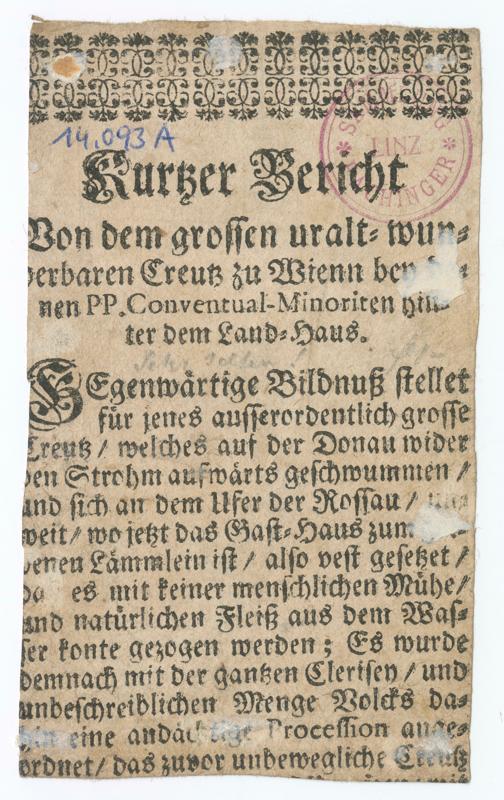 14.093 A
LINZ
Kurtzer Bericht
Von dem grossen uralt-wun-
derbaren Creutz zu Wienn bey
nen PP. Conventual-Minoriten hin-
ter dem Land-Haus.
GEgenwärtige Bildnuß stellet
für jenes ausserordentlich grosse
Creutz / welches auf der Donau wider
den Strohm aufwärts geschwummen /
und sich an dem Ufer der Rossau /
weit / wo jetzt das Gast-Haus zum
denen Lämmlein ist / also vest gesetzet /
da es mit keiner menschlichen Mühe /
und natürlichen Fleiß aus dem Was-
ser konte gezogen werden ; Es wurde
demnach mit der gantzen Clerisey / und
unbeschreiblichen Menge Volcks da-
hin eine andächtige Procession ange-
ordnet / das zuvor unbewegliche Creutz